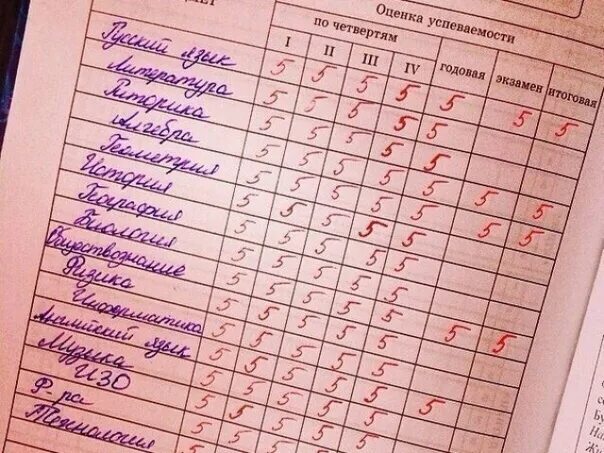 Оценка успеваемости
по четвертям
I II III IV годовая экзамен итоговая
Русский язык 5 5 5 5 5 5 5
Литература 5 5 5 5 5
Риторика 5 5 5 5 5
Алгебра 5 5 5 5 5 5 5
Геометрия 5 5 5 5 5 5 5
История 5 5 5 5 5
География 5 5 5 5 5
Биология 5 5 5 5 5
Обществознание 5 5 5 5 5 5 5
Физика 5 5 5 5 5
Информатика 5 5 5 5 5
Английский язык 5 5 5 5 5 5
Музыка 5 5 5 5 5
ИЗО 5 5 5 5 5
Ф-ра 5 5 5 5
Технология 5 5